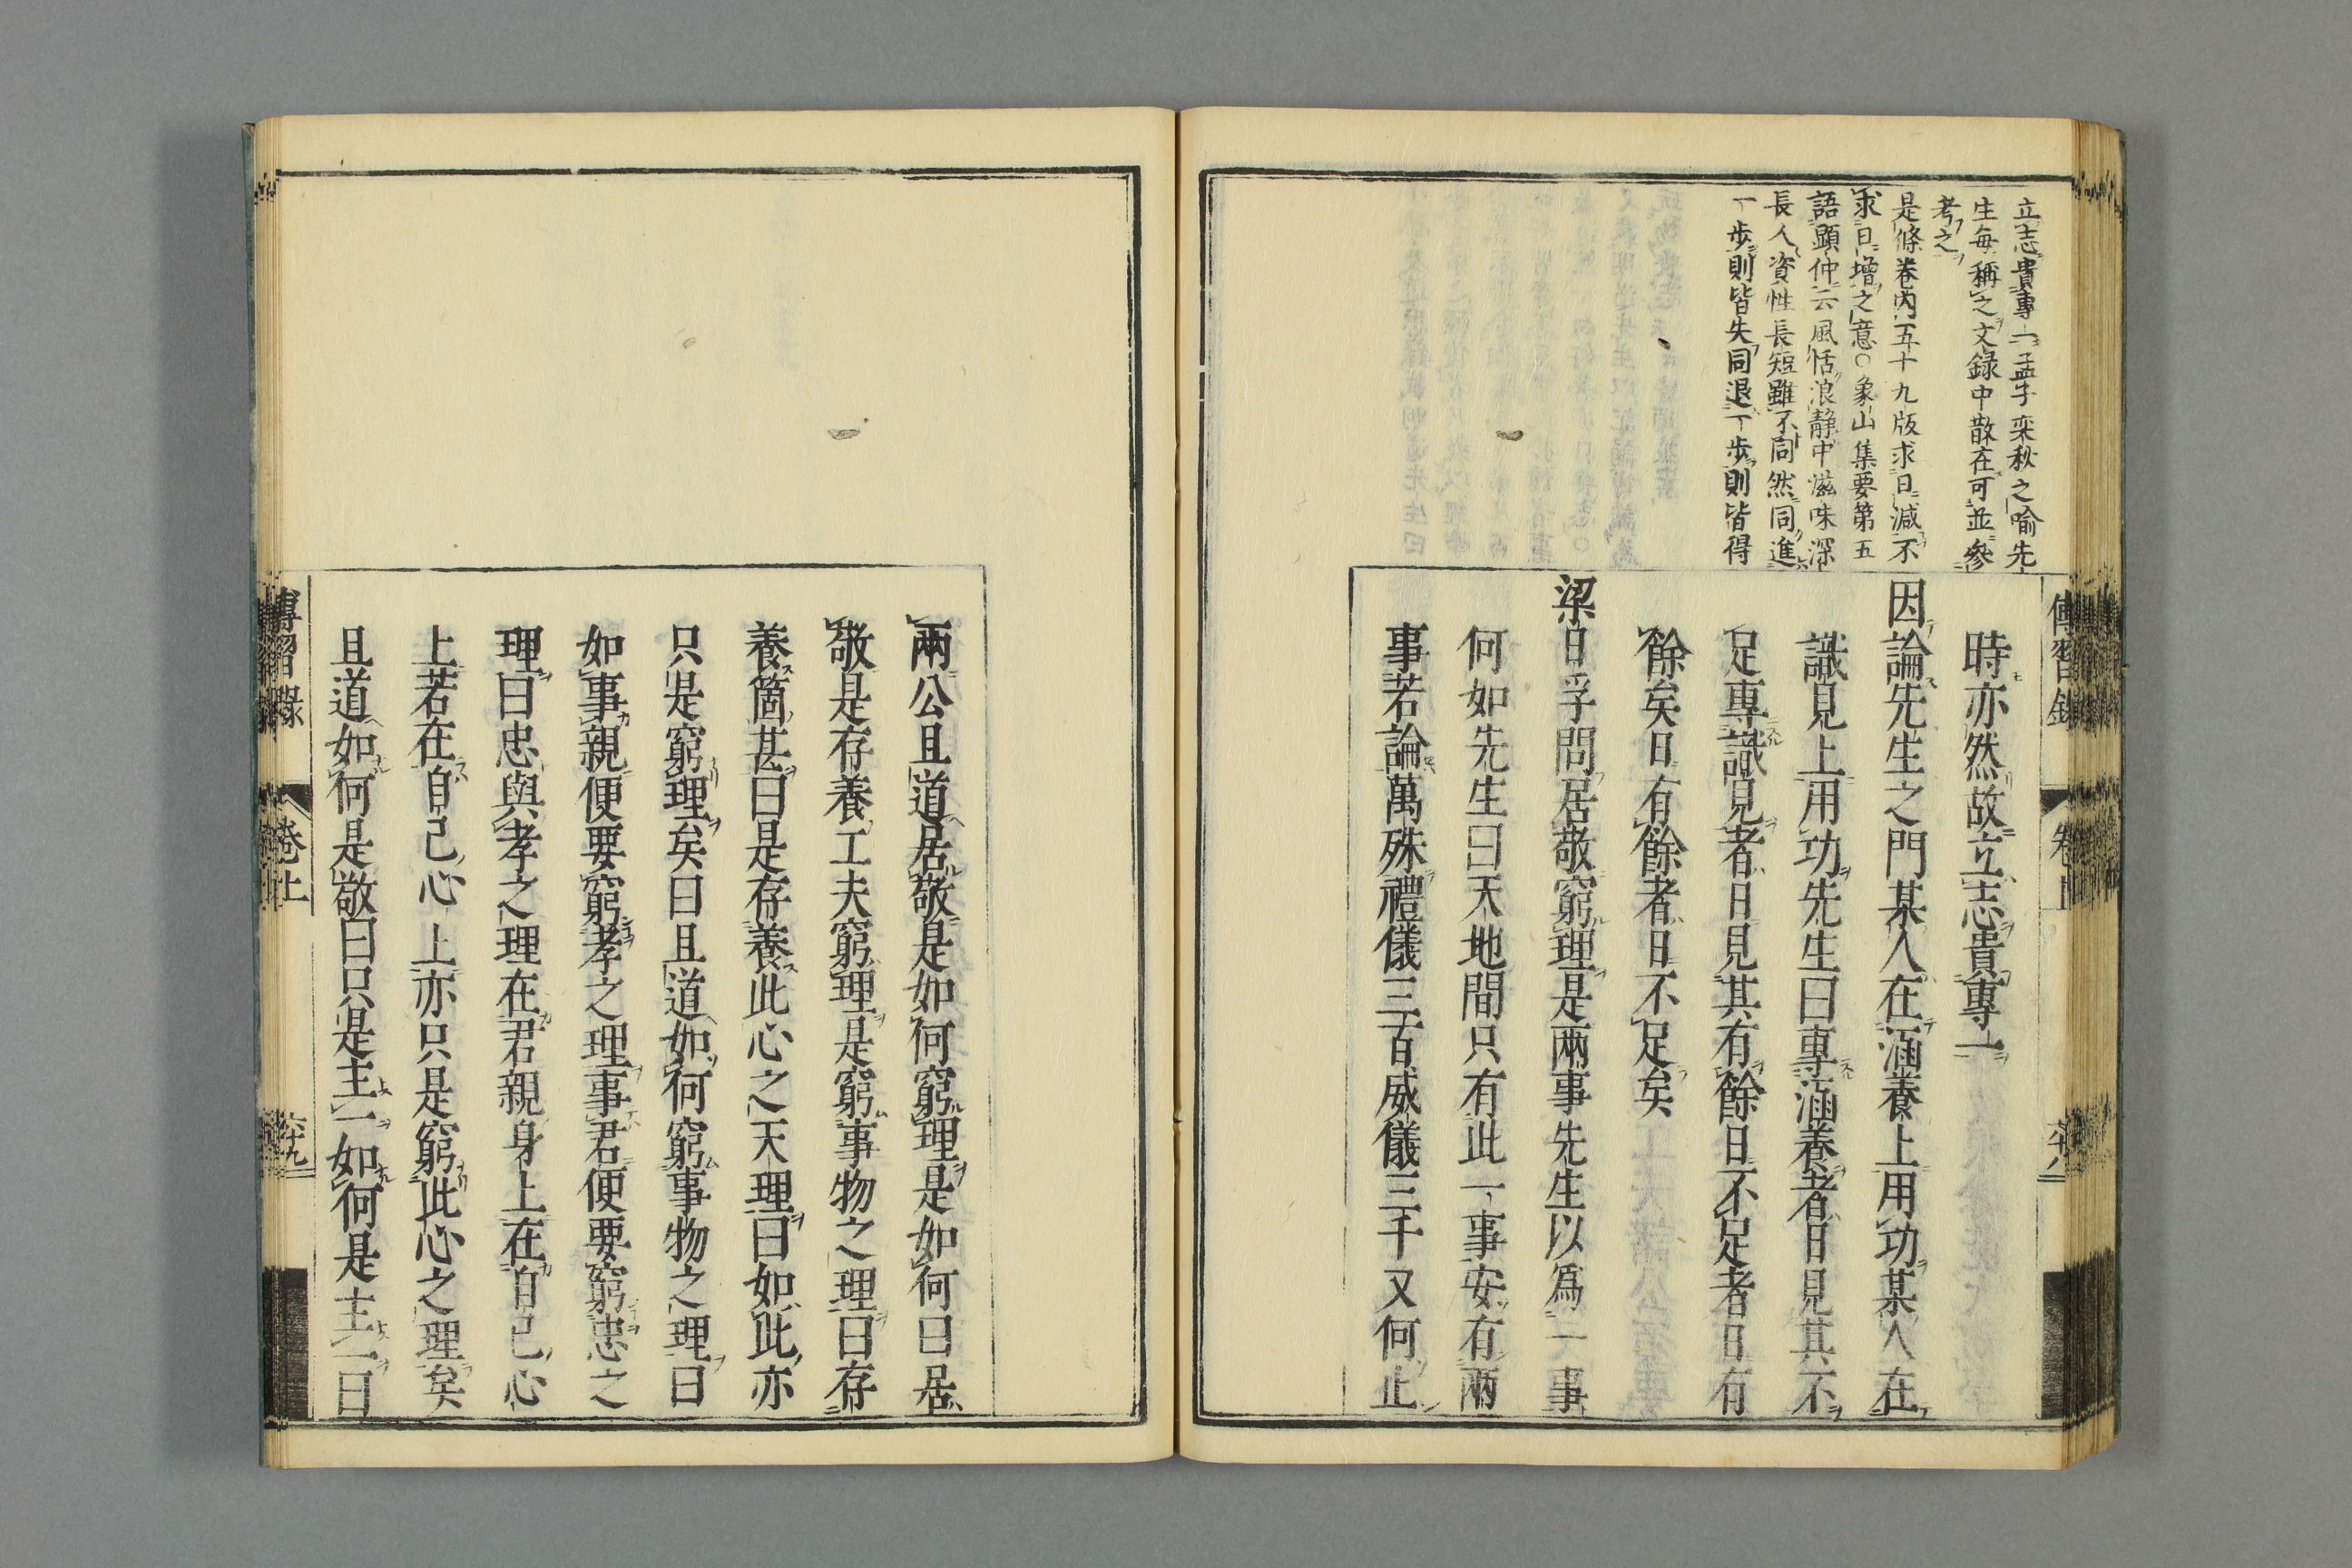 立志貴專一孟子奕秋之喻先
生每稱之文録中散在可並參
考之
是條卷内五十九版求日減不
求日增之意○象山集要第五
語顯仲云風恬浪静中滋味深
長人資性長短雖不同然同進
一步則皆失同退一步則皆得
傳習録
卷上
六十八
時亦然故立志貴專一
因論先生之門某人在涵養上用功某人在
識見上用功先生曰專涵養者日見其不
足專識見者日見其有餘日不足者日有
餘矣日有餘者日不足矣
梁日孚問居敬窮理是兩事先生以爲一事
何如先生曰天地間只有此一事安有兩
事若論萬殊禮儀三百威儀三千又何止
兩公且道居敬是如何窮理是如何曰居
敬是存養工夫窮理是窮事物之理曰存
養箇甚曰是存養此心之天理曰如此亦
只是窮理矣曰且道如何窮事物之理曰
如事親便要窮孝之理事君便要窮忠之
理曰忠與孝之理在君親身上在自己心
上若在自己心上亦只是窮此心之理矣
且道如何是敬曰只是主一如何是主一曰
傳習録
卷上
六十九